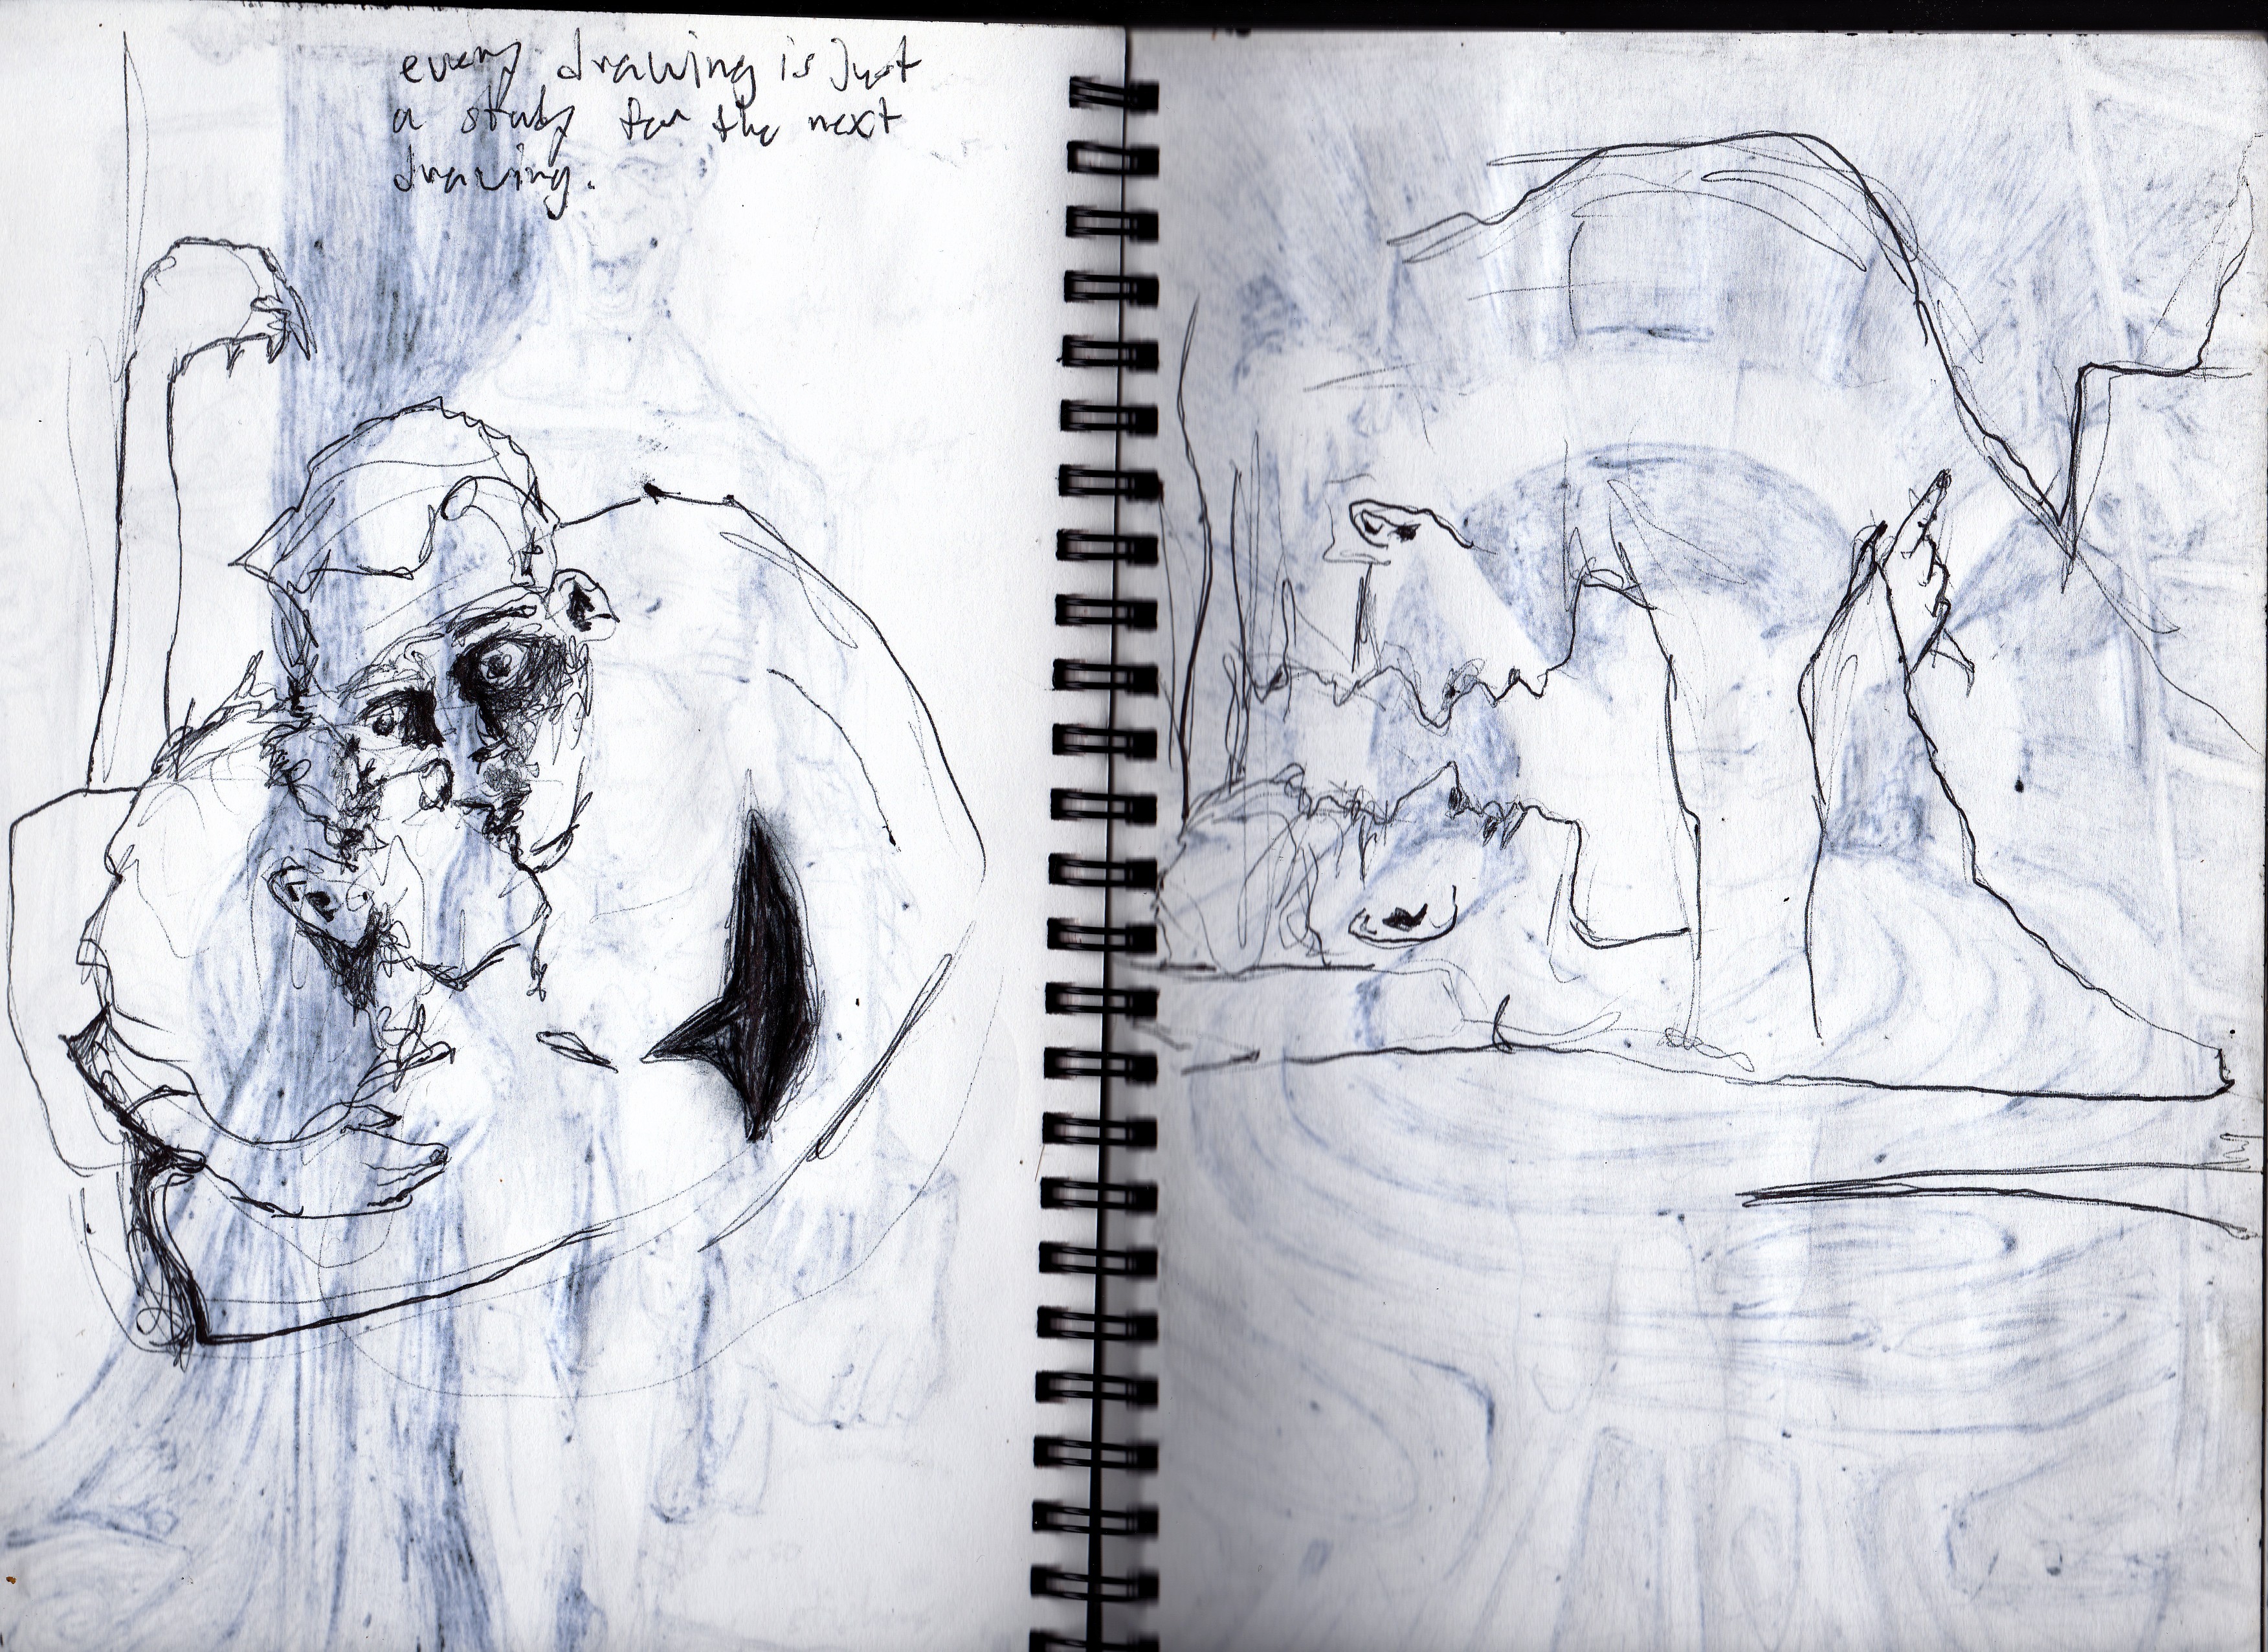 every drawing is Just
a study for the next
drawing.